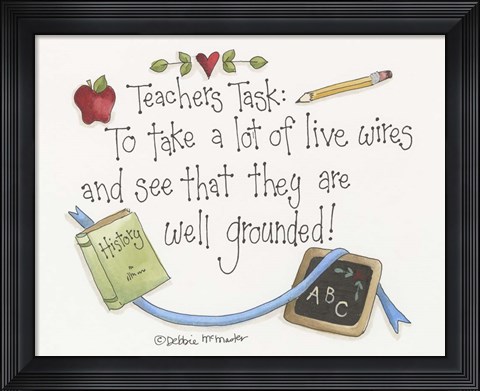 Teachers Task:
To take a lot of live wires
and see that they are
well grounded!
History
ABC
©Debbie McMaster